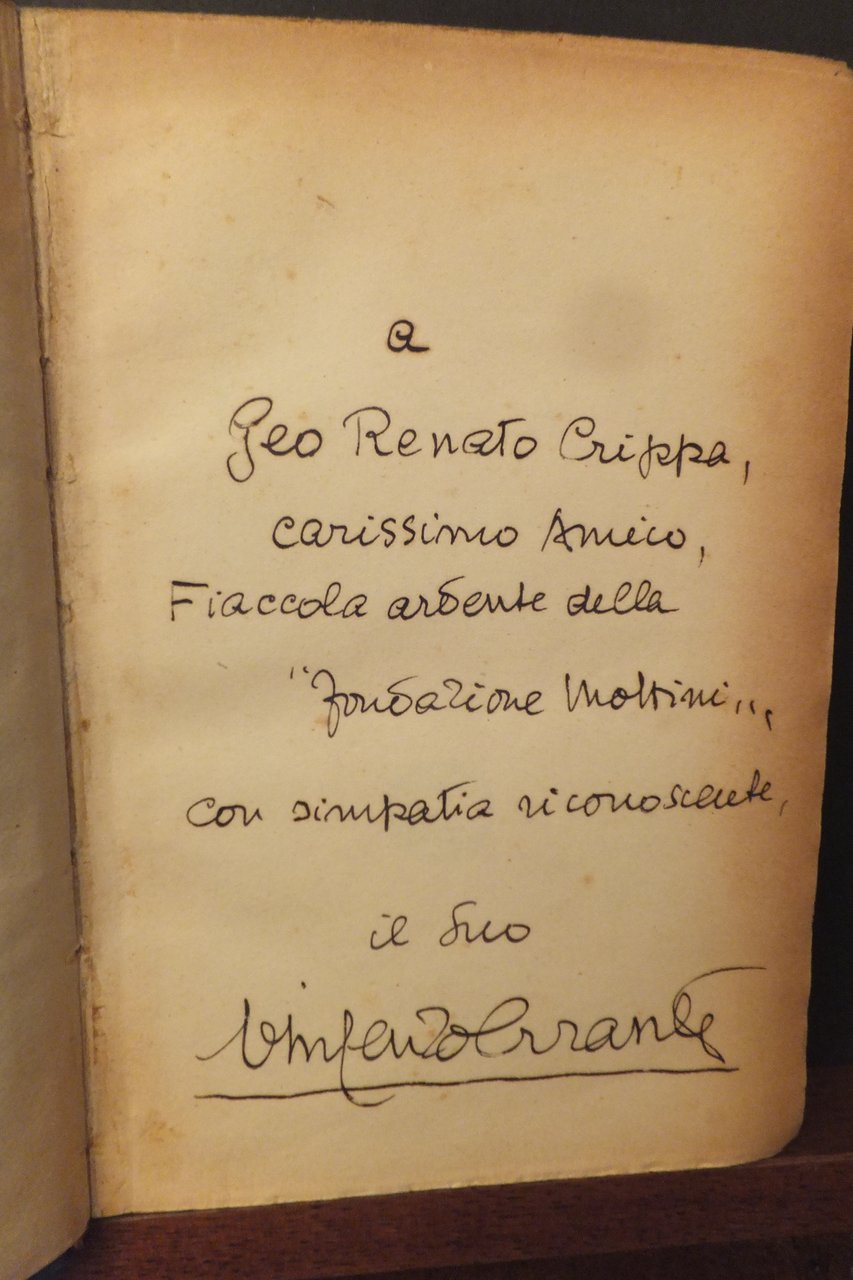 a
Geo Renato Crippa,
carissimo Amico,
Fiaccola ardente della
"Fondazione Moltini",
con simpatia riconoscente,
il Suo
Vincenzo Errante